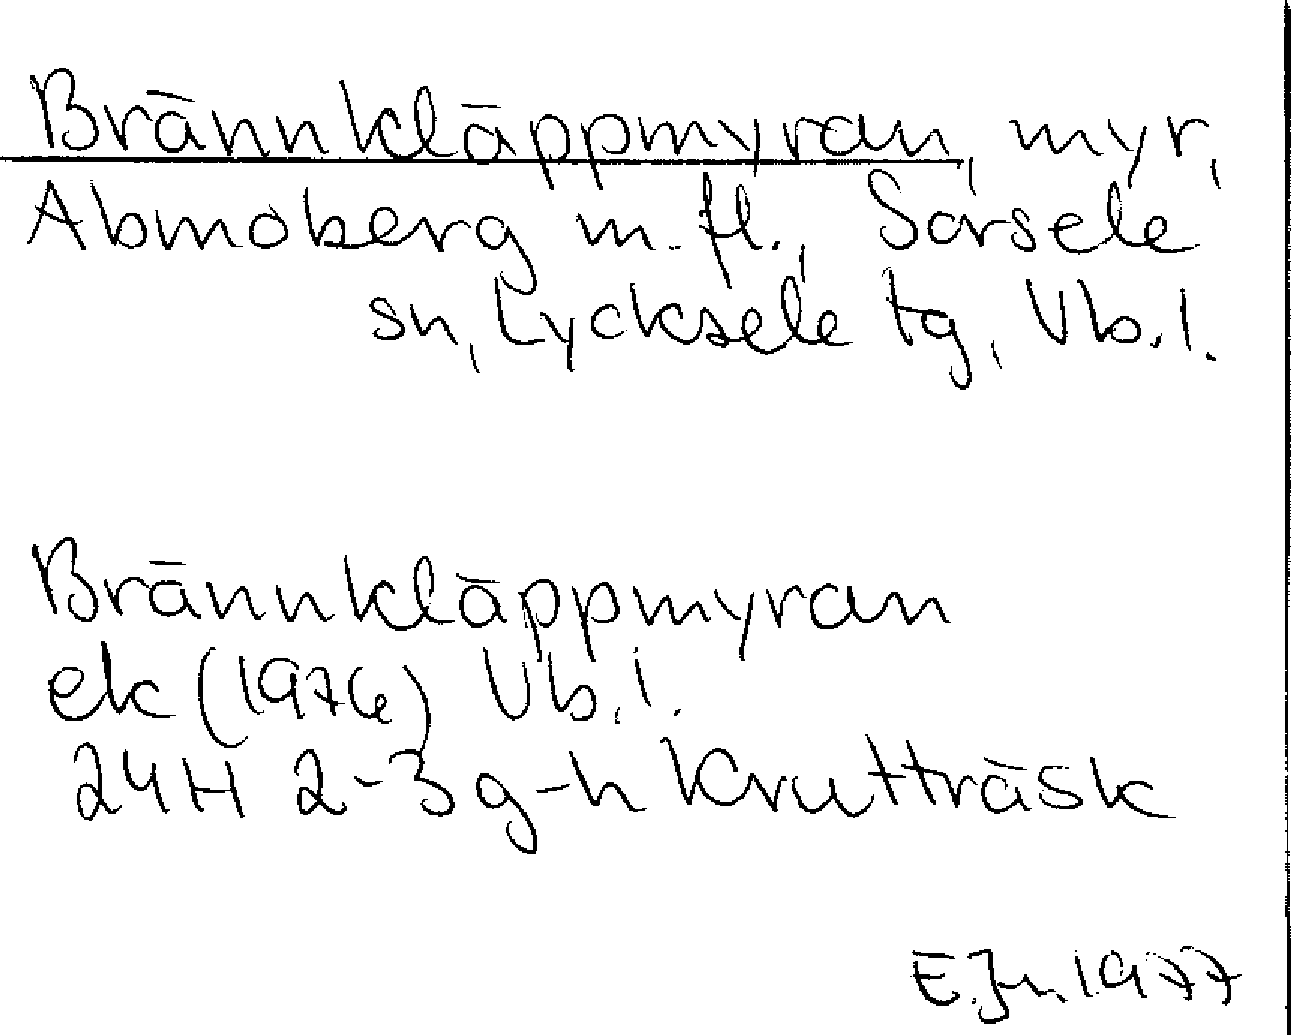 Brännkläppmyran, myr,
Abmoberg m.fl., Sorsele
sn, Lycksele tg, Vb.l.
Brännkläppmyran
ek (1976) Vb.l.
24H 2-3 g-h Krutträsk
E.Jn. 1977